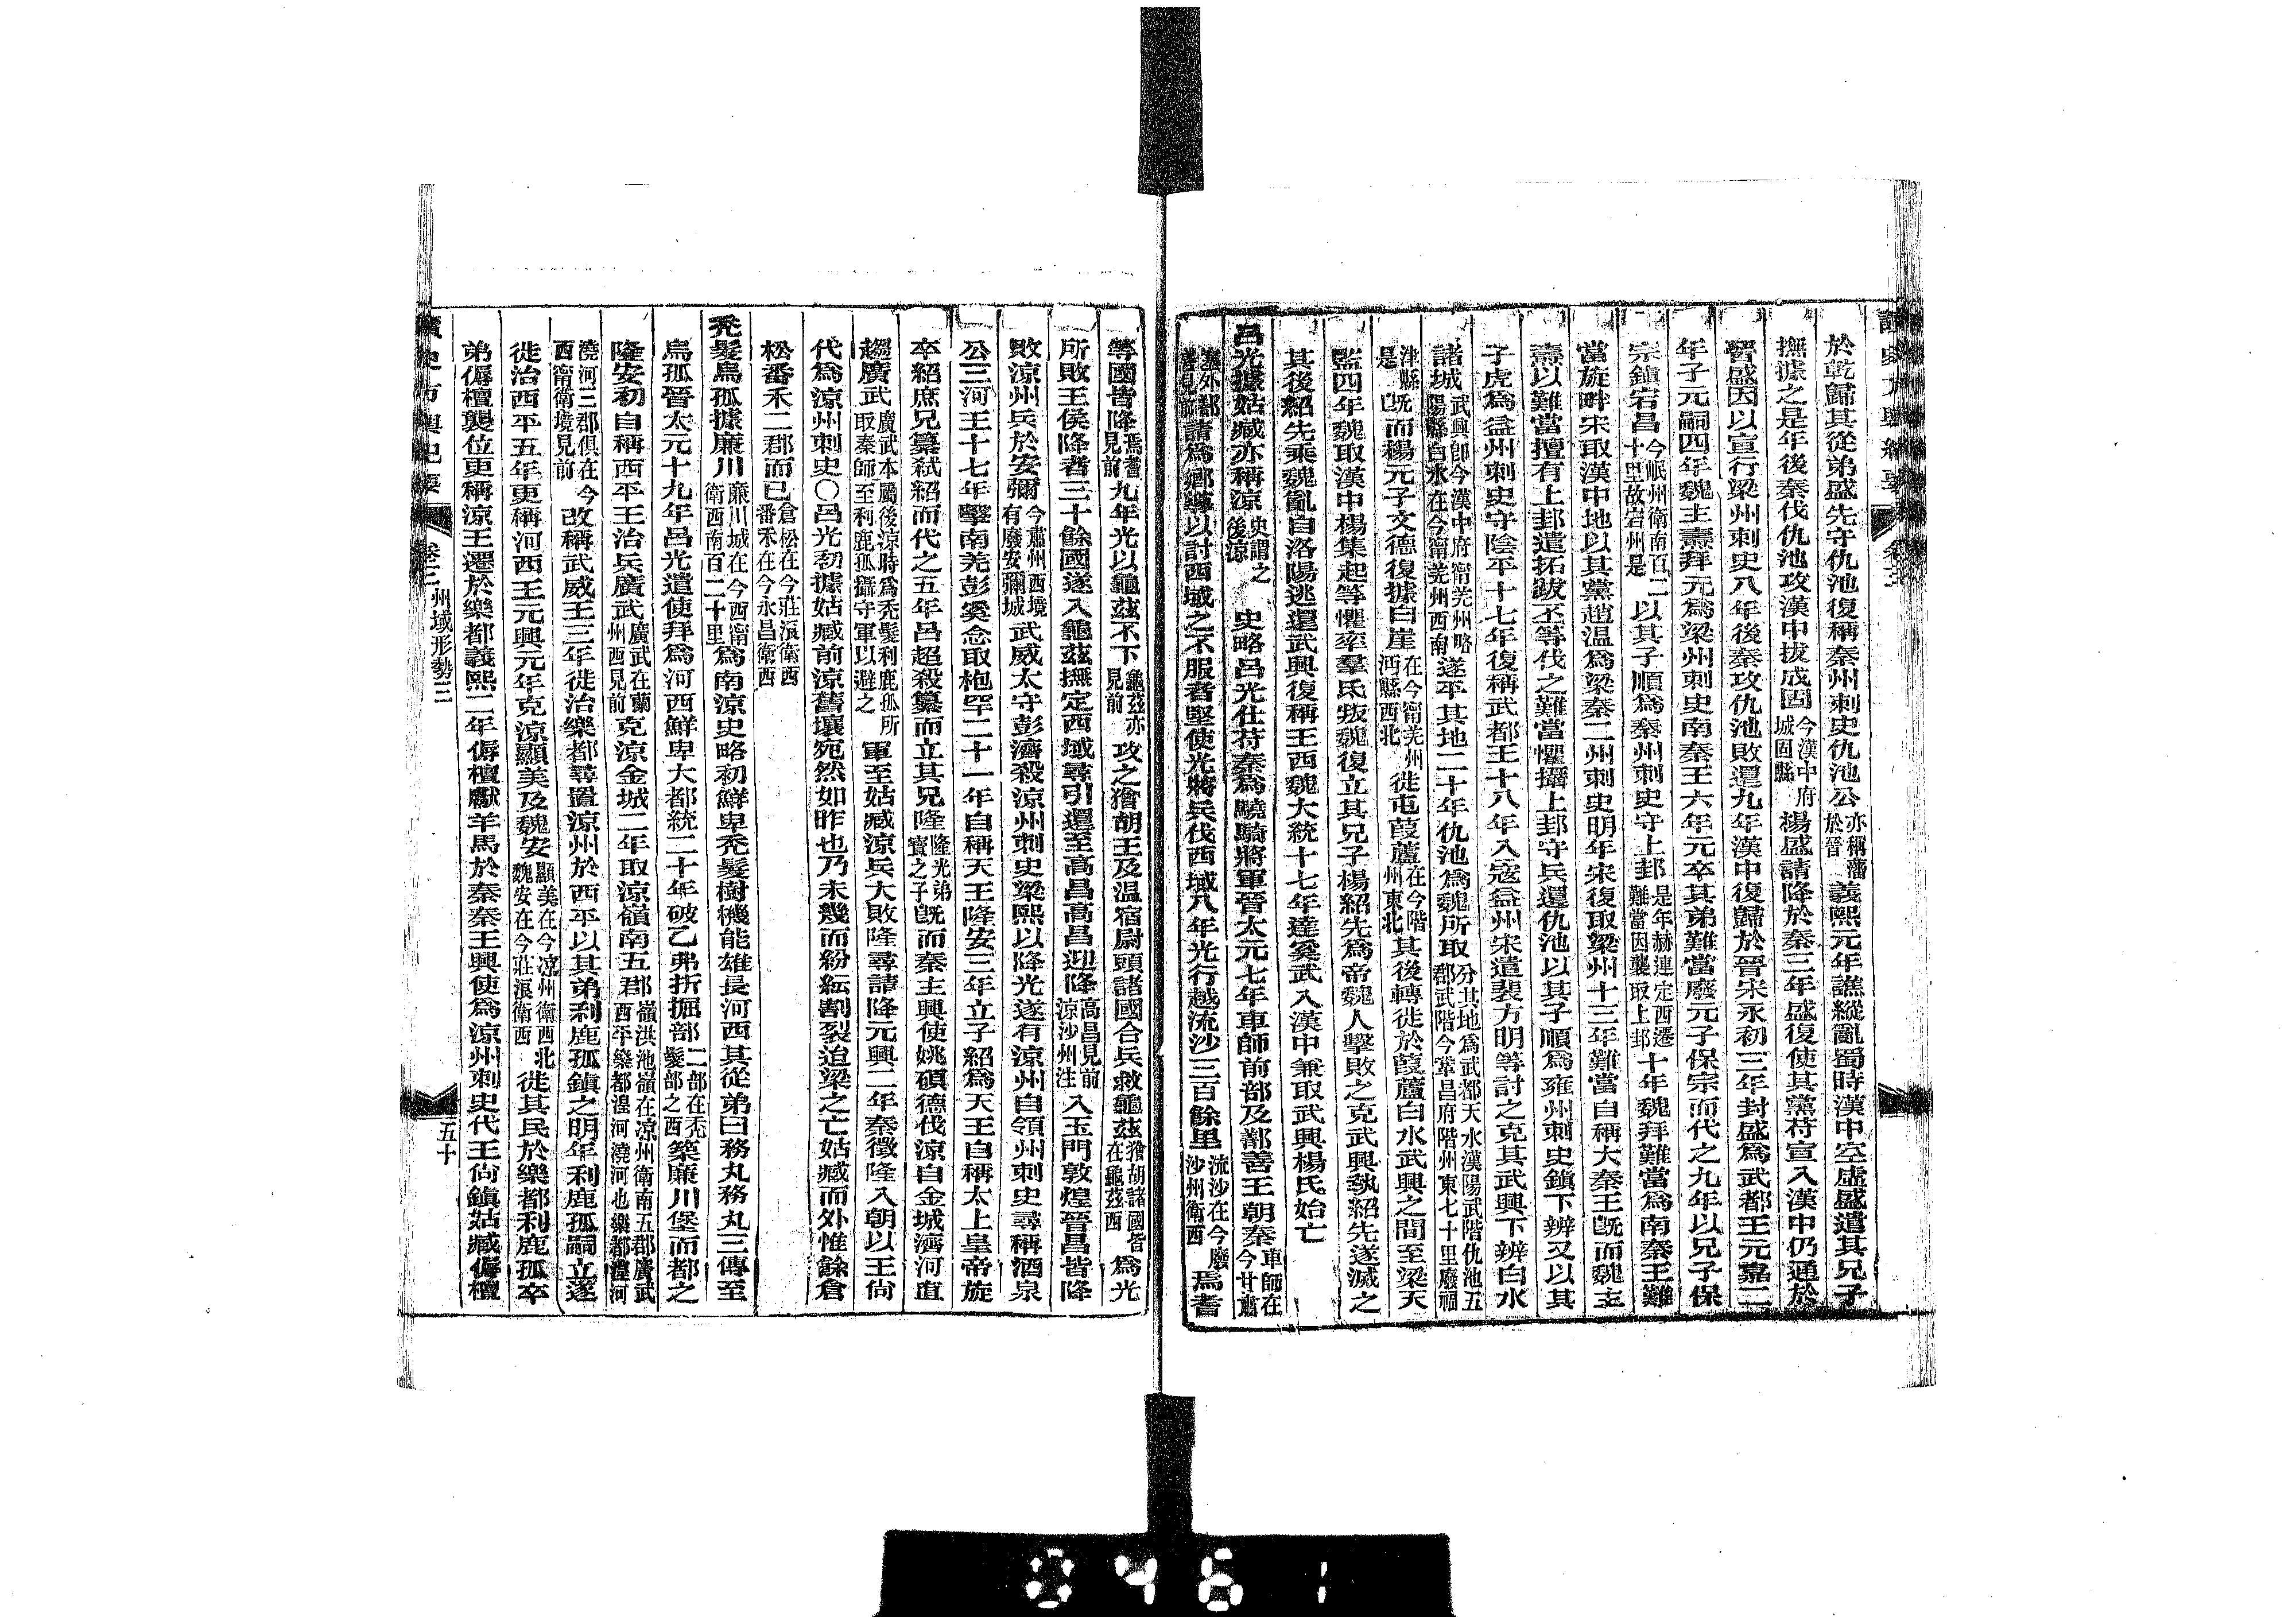 於乾歸其從弟盛先守仇池復稱秦州刺史仇池公亦稱藩於晉義熙元年譙縱亂蜀時漢中空虛盛遣其兄子
撫據之是年後秦伐仇池攻漢中拔成固今漢中府城固縣楊盛請降於秦三年盛復使其黨苻宣入漢中仍通於
晉盛因以宣行梁州刺史八年後秦攻仇池敗還九年漢中復歸於晉宋永初三年封盛爲武都王元嘉二
年子元嗣四年魏主燾拜元爲梁州刺史南秦王六年元卒其弟難當廢元子保宗而代之九年以兄子保
宗鎮宕昌今岷州衛南百二十里故宕州是以其子順爲秦州刺史守上邽是年赫連定西遷難當因襲取上邽十年魏拜難當爲南秦王難
當旋畔宋取漢中地以其黨趙溫爲梁秦二州刺史明年宋復取梁州十三年難當自稱大秦王旣而魏主
燾以難當擅有上邽遣拓跋丕等伐之難當懼攝上邽守兵還仇池以其子順爲雍州刺史鎮下辨又以其
子虎爲益州刺史守陰平十七年復稱武都王十八年入寇益州宋遣裴方明等討之克其武興下辨白水
諸城武興卽今漢中府甯羌州略陽縣白水在今甯羌州西南遂平其地二十年仇池爲魏所取分其地爲武都天水漢陽武階仇池五郡武階今鞏昌府階州東七十里廢福
津縣是旣而楊元子文德復據白崖在今甯羌州沔縣西北徙屯葭蘆在今階州東北其後轉徙於葭蘆白水武興之間至梁天
監四年魏取漢中楊集起等懼率羣氐拔魏復立其兄子楊紹先爲帝魏人擊敗之克武興執紹先遂滅之
其後紹先乘魏亂自洛陽逃還武興復稱王西魏大統十七年達奚武入漢中兼取武興楊氏始亡
呂光據姑臧亦稱涼史謂之後涼史略呂光仕苻秦爲驍騎將軍晉太元七年車師前部及鄯善王朝秦車師在今甘肅
塞外鄯善見前請爲鄉導以討西域之不服者堅使光將兵伐西域八年光行越流沙三百餘里流沙在今廢沙州衛西焉耆
等國皆降焉耆見前九年光以龜茲不下龜茲亦見前攻之獪胡王及溫宿尉頭諸國合兵救龜茲獪胡諸國皆在龜茲西爲光
所敗王侯降者三十餘國遂入龜茲撫定西域尋引還至高昌高昌迎降高昌見前涼沙州注入玉門敦煌晉昌皆降
敗涼州兵於安彌今肅州西境有廢安彌城武威太守彭濟殺涼州刺史梁熙以降光遂有涼州自領州刺史尋稱酒泉
公三河王十七年擊南羌彭奚念取枹罕二十一年自稱天王隆安三年立子紹爲天王自稱太上皇帝旋
卒紹庶兄纂弒紹而代之五年呂超殺纂而立其兄隆隆光弟寶之子旣而秦主興使姚碩德伐涼自金城濟河直
趨廣武廣武本屬後涼時爲禿髮利鹿孤所取秦師至利鹿孤攝守軍以避之軍至姑臧涼兵大敗隆尋請降元興二年秦徵隆入朝以王尙
代爲涼州刺史○呂光刱據姑臧前涼舊壤宛然如昨也乃未幾而紛紜割裂迨梁之亡姑臧而外惟餘倉
松番禾二郡而已倉松在今莊浪衛西番禾在今永昌衛西
禿髮烏孤據廉川廉川城在今西甯衛西南百二十里爲南涼史略初鮮卑禿髮樹機能雄長河西其從弟曰務丸務丸三傳至
烏孤晉太元十九年呂光遣使拜爲河西鮮卑大都統二十年破乙弗折掘部二部在禿髮部之西築廉川堡而都之
隆安初自稱西平王治兵廣武廣武在蘭州西見前克涼金城二年取涼嶺南五郡嶺洪池嶺在涼州衛南五郡廣武西平樂都湟河澆河也樂都湟河
澆河三郡俱在今西甯衛境見前改稱武威王三年徙治樂都尋置涼州於西平以其弟利鹿孤鎮之明年利鹿孤嗣立遂
徙治西平五年更稱河西王元興元年克涼顯美及魏安顯美在今涼州衛西北魏安在今莊浪衛西徙其民於樂都利鹿孤卒
弟傉檀襲位更稱涼王遷於樂都義熙二年傉檀獻羊馬於秦秦王興使爲涼州刺史代王尙鎮姑臧傉檀
讀史方輿紀要 卷三 州域形勢三 五十